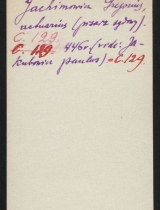 Jachimowicz Gregorius,
actuarius (pisarz sądowy).
C. 129.
C. 119. 446v (vide: Ja-
kubowicz Paulus) = C. 129.